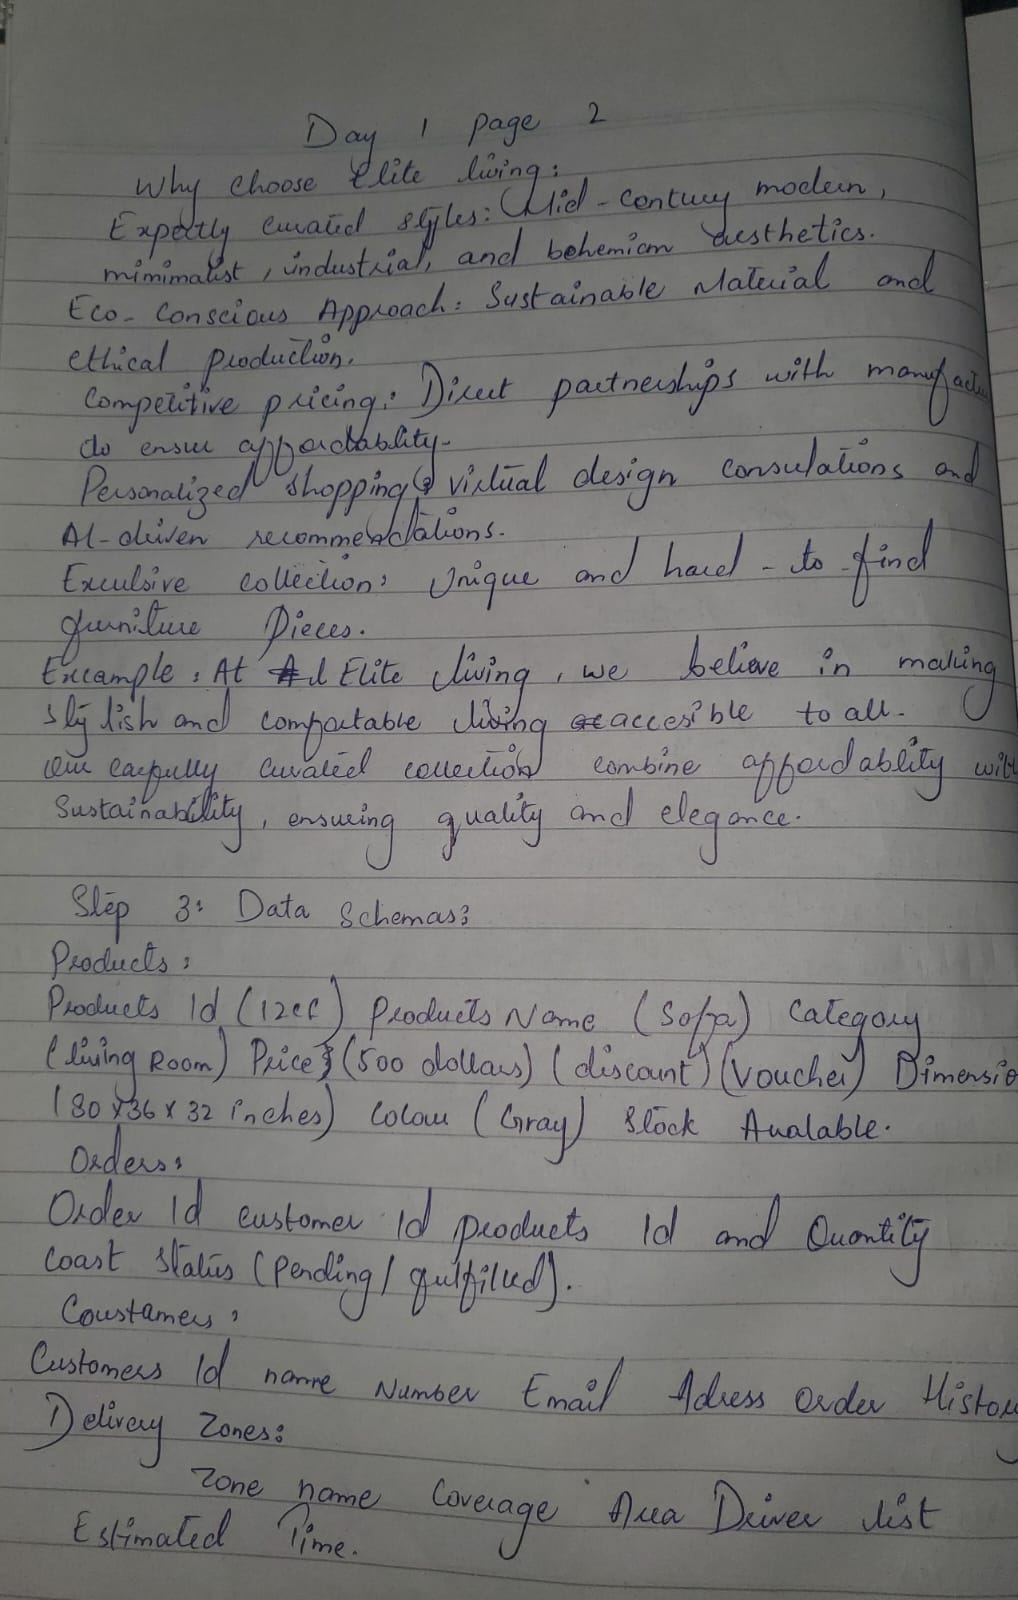 Day 1 page 2
Why choose Elite living:
Expertly curated styles: Mid-Contury modern,
minimalist, industrial, and behemian aesthetics.
Eco-Conscious Approach: Sustainable Material and
ethical production.
Competitive pricing: Direct partnerships with manufactu
do ensure affordablity-
Personalized shopping: virtual design consulations and
AI-driven recommendations.
Exculsive collection: Unique and hard-to-find
furniture Pieces.
Excample: At Elite living, we believe in making
stylish and comfortable living accesible to all.
Our carfully curated collection combine affordablity with
Sustainability, ensuring quality and elegance.
Step 3: Data Schemas:
Products:
Products Id (12ef) Products Name (Sofa) Category
(living Room) Price (500 dollars) (discount) (Voucher) Dimensio
(80x36x32 inches) Colour (Gray) Stock Avalable.
Orders:
Order Id customer Id products Id and Quantity
Coast status (Pending/ fulfilled).
Coustamers:
Customers Id name Number Email Adress order History
Delivery Zones:
Zone name Coverage Area Driver list
Estimated Time.